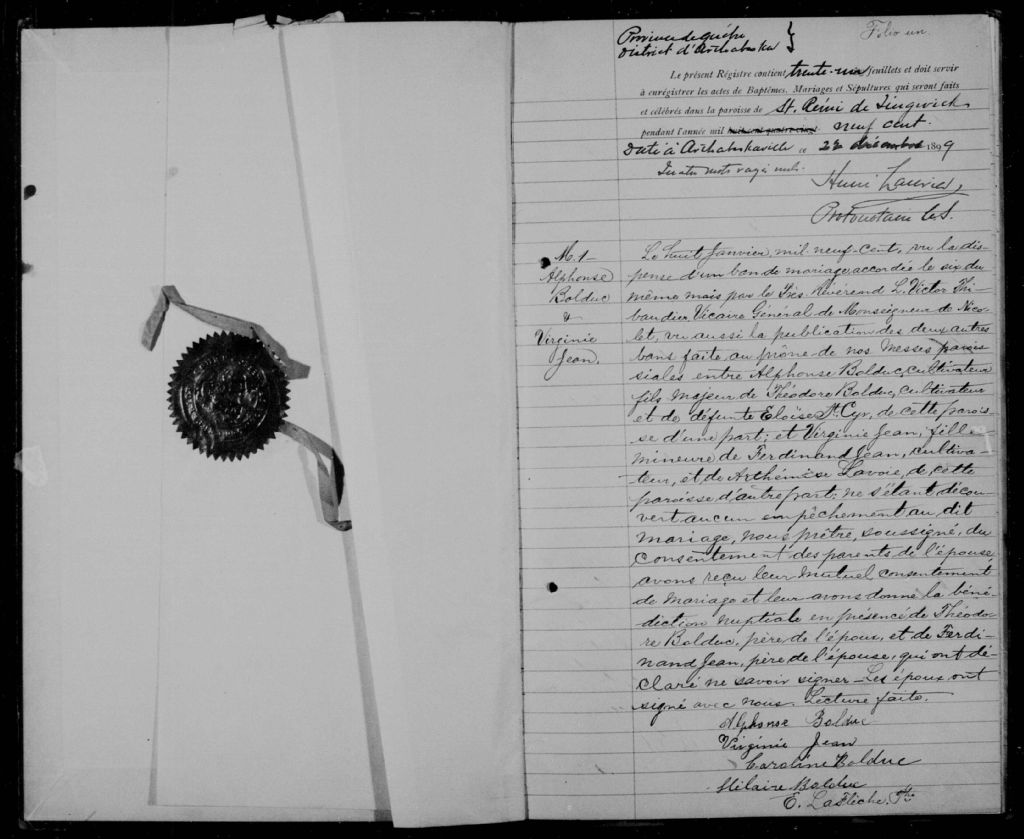 Province de Québec
District d'Arthabaska }
Folio un.
Le présent Régistre contient trente-une feuillets et doit servir
à enrégistrer les actes de Baptêmes, Mariages et Sépultures qui seront faits
et célébrés dans la paroisse de St. Rémi de Tingwick
pendant l'année mil neuf cent.
Daté à Arthabaskaville ce 22 décembre 1899
Quatre mots rayés nuls.
Henri Laurier,
Protonotaire C. S.
M. 1
Alphonse
Bolduc
&
Virginie
Jean.
Le huit Janvier mil neuf-cent, vu la dis-
pense d'un ban de mariage accordée le six du
même mois par le Très Révérend L. Victor Thi-
baudier Vicaire Général de Monseigneur de Nico-
let, vu aussi la publication des deux autres
bans faite au prône de nos Messes parois-
siales entre Alphonse Bolduc, cultivateur
fils majeur de Théodore Bolduc, cultivateur
et de défunte Eloïse St. Cyr, de cette parois-
se d'une part; et Virginie Jean, fille
mineure de Ferdinand Jean, cultiva-
teur, et de Arthémise Lavoie, de cette
paroisse d'autre part; ne s'étant décou-
vert aucun empêchement au dit
mariage, nous prêtre, soussigné, du
consentement des parents de l'épouse,
avons reçu leur mutuel consentement
de mariage et leur avons donné la béné-
diction nuptiale en présence de Théodo-
re Bolduc, père de l'époux, et de Ferdi-
nand Jean, père de l'épouse, qui ont dé-
claré ne savoir signer - Les époux ont
signé avec nous. Lecture faite.
Alphonse Bolduc
Virginie Jean
Caroline Bolduc
Hilaire Bolduc
E. LaFlèche, Ptre